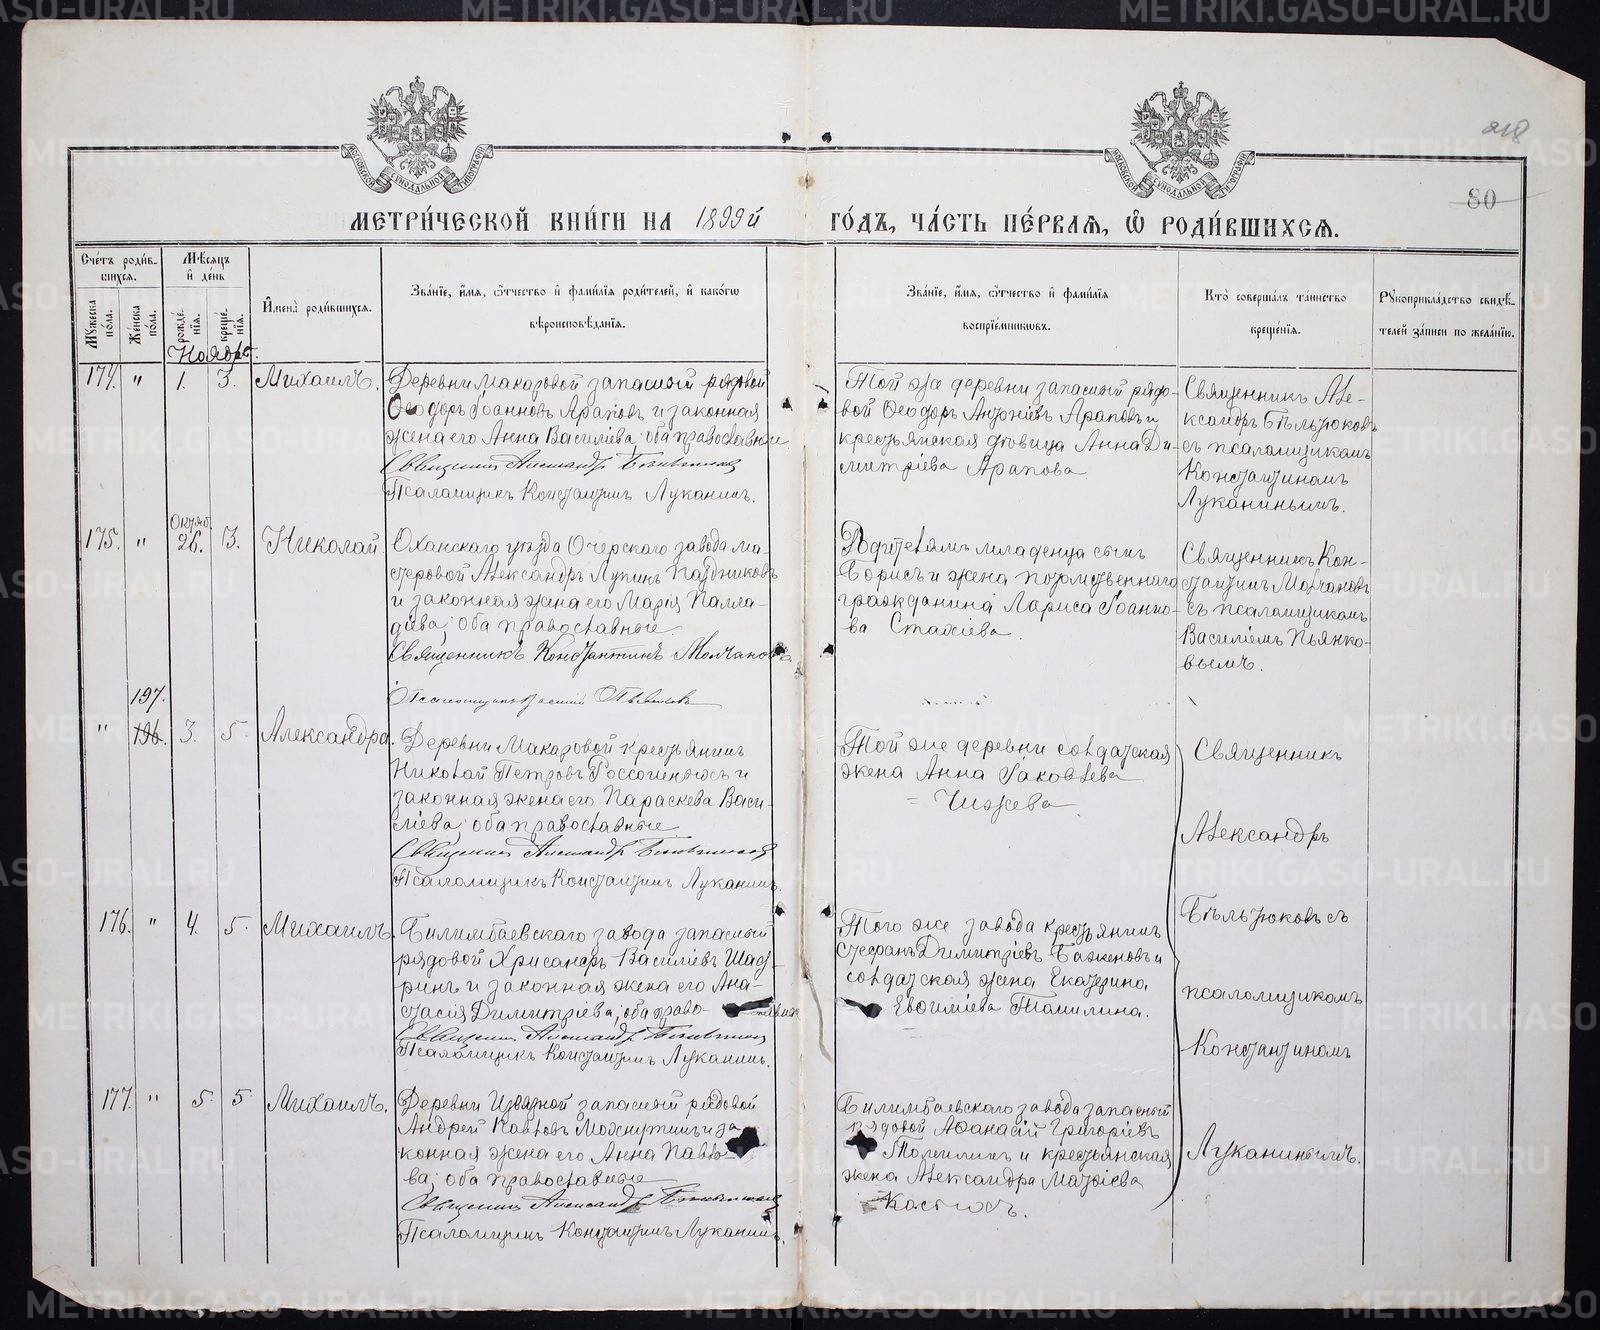 МЕТРИ́ЧЕСКОЙ КНИ́ГИ НА 1899й ГО́ДЪ, ЧА́СТЬ ПЕ́РВАЯ, Ѽ РОДИ́ВШИХСЯ.
218
80
Сче́тъ роди́в-
шихся.
Му́жеска по́ла.
Же́нска по́ла.
Мѣ́сяцъ и҆ де́нь
рожде́нїѧ.
креще́нїѧ.
И҆мена̀ роди́вшихся.
Зва́нїе, и҆́мѧ, ѻ҆́тчество и҆ фами́лїѧ роди́телей, и҆ како́гѡ
вѣроисповѣ́данїѧ.
Зва́нїе, и҆́мѧ, ѻ҆́тчество и҆ фами́лїѧ
воспрїе́мниковъ.
Кто̀ соверша́лъ та́инство
креще́нїѧ.
Рꙋкоприкла́дство свидѣ́-
телей за́писи по жела́нїю.
Ноябрь.
174. " 1. 3. Михаилъ.
Деревни Макаровой запасный рядовой
Ѳеодоръ Іоанновъ Араповъ и законная
жена его Анна Василіева; оба православные
Священникъ Александръ Бѣльтюковъ
Псаломщикъ Константинъ Луканинъ.
Той же деревни запасный рядо-
вой Ѳеодоръ Араповъ и
крестьянская дѣвица Анна Ди-
митріева Арапова
Священникъ Але-
ксандръ Бѣльтюковъ
съ псаломщикомъ
Константиномъ
Луканинымъ.
175. " Октяб. 26. 3. Николай
Оханскаго уѣзда Очерскаго завода ма-
стеровой Александръ Лупинъ Паздниковъ
и законная жена его Марія Палла-
діева; оба православные.
Священникъ Константинъ Молчановъ.
Псаломщикъ Василій Пьянковъ
Родителямъ младенца сынъ
Борисъ и жена потомственнаго
гражданина Лариса Іоанно-
ва Стахіева.
Священникъ Кон-
стантинъ Молчановъ
съ псаломщикомъ
Василіемъ Пьянко-
вымъ.
197.
" 196. 3. 5. Александра.
Деревни Макаровой крестьянинъ
Николай Петровъ и
законная жена его Параскева Васи-
ліева; оба православные
Священникъ Александръ Бѣльтюковъ
Псаломщикъ Константинъ Луканинъ.
Той же деревни солдатская
жена Анна Іаковлева
Чижева
Священникъ
Александръ
Бѣльтюковъ съ
псаломщикомъ
Константиномъ
Луканинымъ.
176. " 4. 5. Михаилъ.
Билимбаевскаго завода запасный
рядовой Хрисанѳъ Василіевъ Шаф-
ринъ и законная жена его Ана-
стасія Димитріева; оба право-
Священникъ Александръ Бѣльтюковъ
Псаломщикъ Константинъ Луканинъ.
Того же завода крестьянинъ
Стефанъ Димитріевъ Баженовъ и
солдатская жена Екатерина
Евѳиміева Томилина.
177. " 5. 5 Михаилъ.
Деревни Извязной запасный рядовой
Андрей и за
конная жена его Анна Павло-
ва; оба православные
Священникъ Александръ Бѣльтюковъ
Псаломщикъ Константинъ Луканинъ.
Билимбаевскаго завода запасный
рядовой Аѳанасій Григоріевъ
и крестьянская
жена Александра Матѳіева